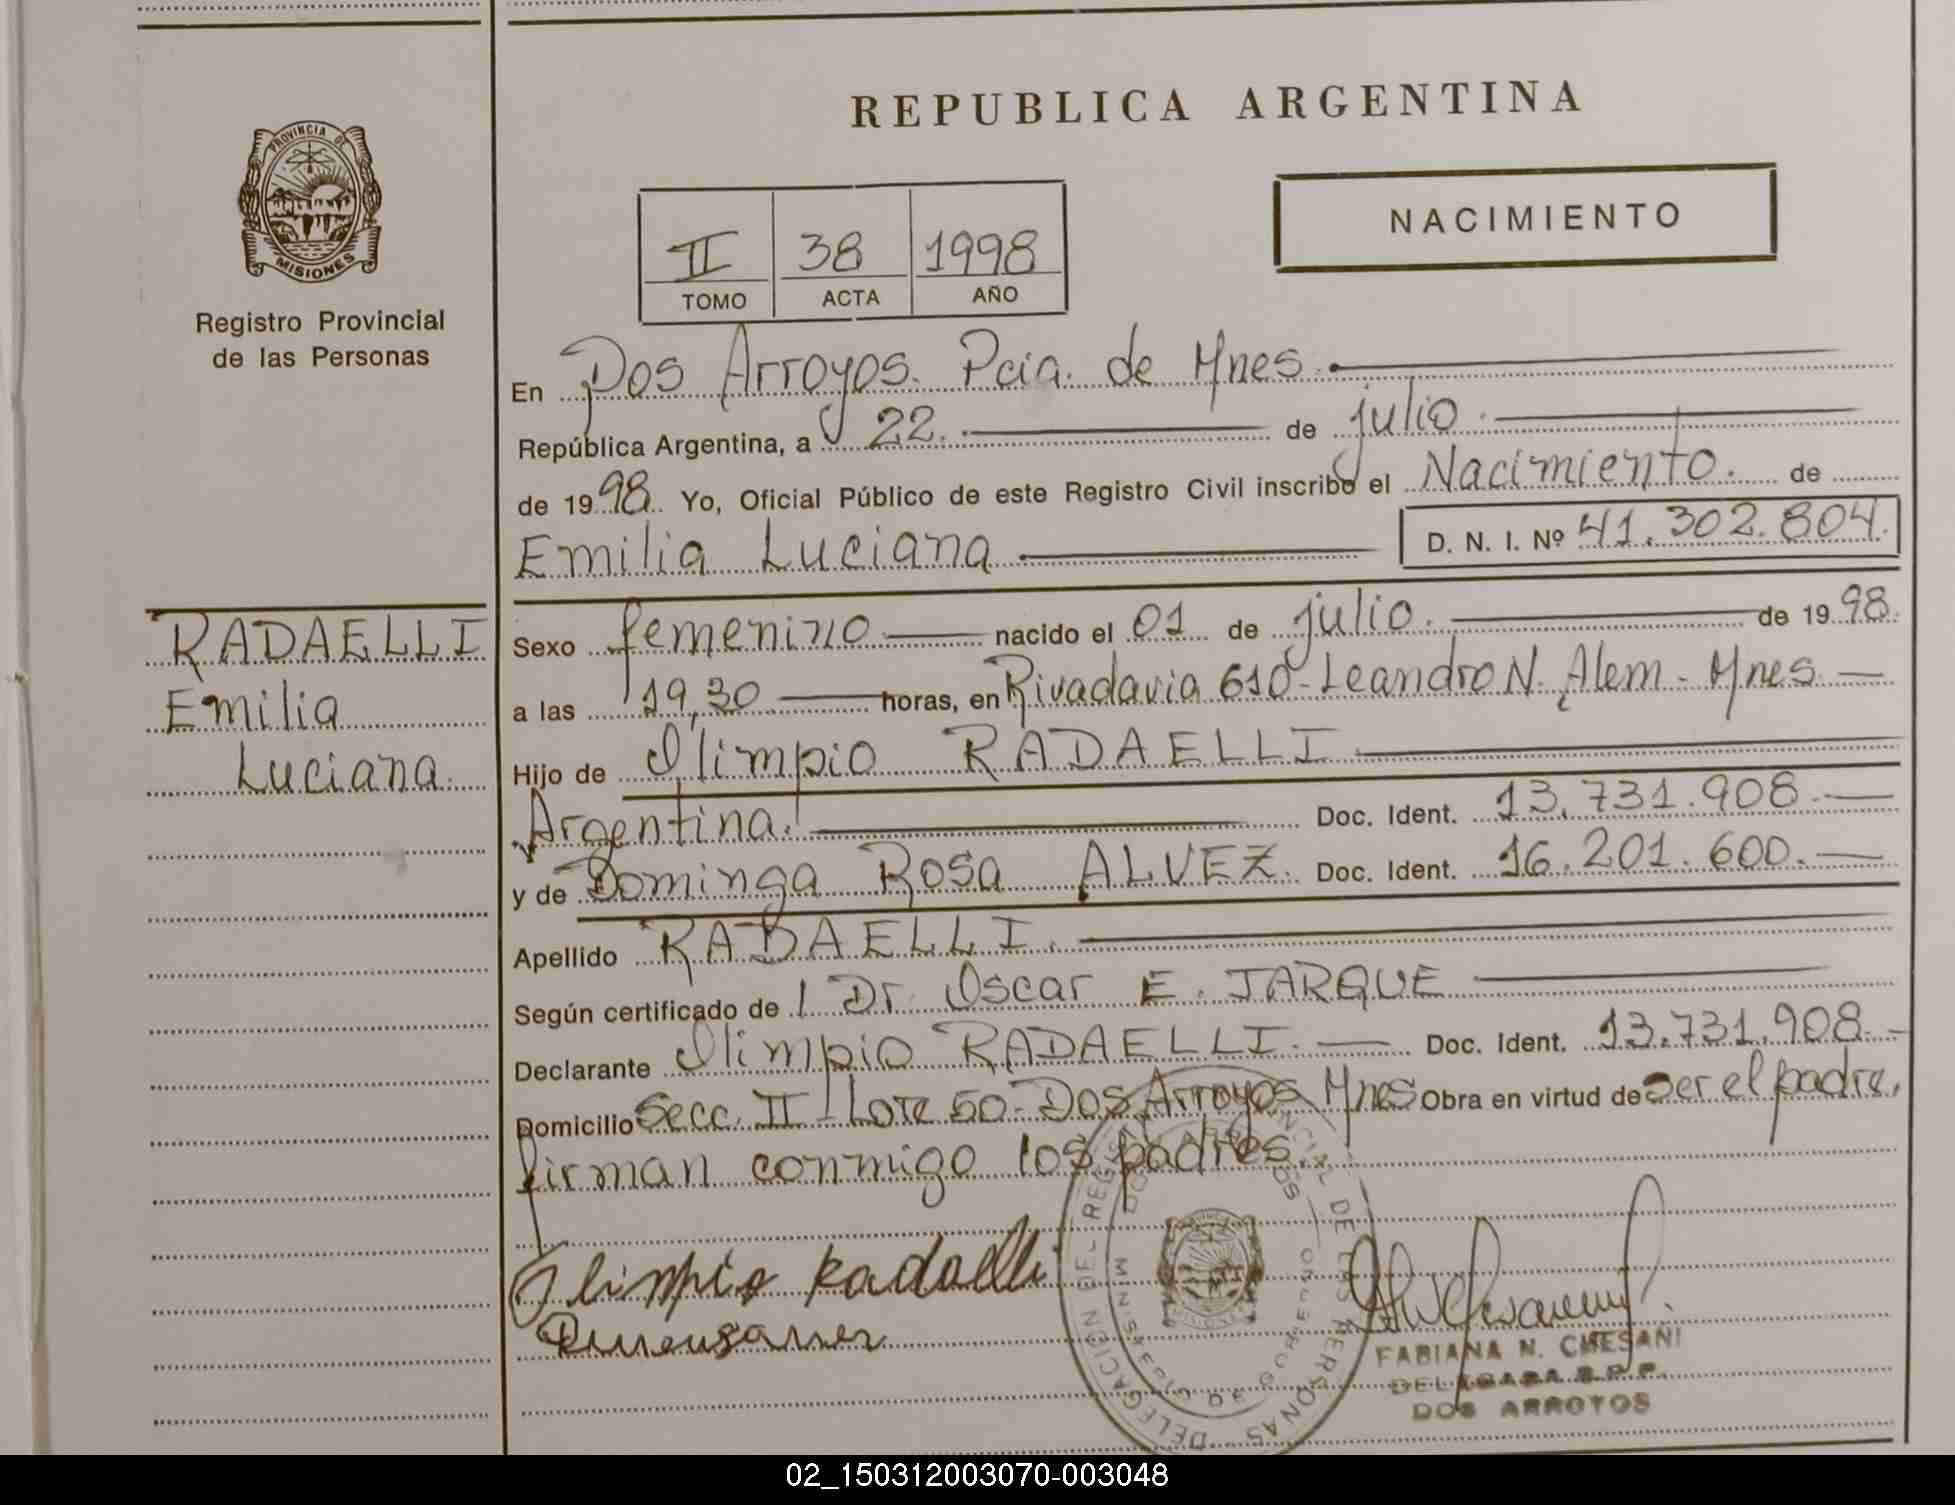 REPUBLICA ARGENTINA
PROVINCIA DE
MISIONES
Registro Provincial
de las Personas
II 38 1998
TOMO ACTA AÑO
NACIMIENTO
En Dos Arroyos. Pcia. de Mnes.
República Argentina, a 22. de julio.
de 1998. Yo, Oficial Público de este Registro Civil inscribo el Nacimiento. de
Emilia Luciana D. N. I. Nº 41.302.804.
RADAELLI
Emilia
Luciana.
Sexo femenino nacido el 01 de julio. de 1998.
a las 19,30 horas, en Rivadavia 610-Leandro N. Alem - Mnes.
Hijo de Olimpio RADAELLI.
Argentina. Doc. Ident. 13.731.908.
y de Dominga Rosa ALVEZ. Doc. Ident. 16.201.600.
Apellido RADAELLI.
Según certificado de Dr. Oscar E. JARQUE
Declarante Olimpio RADAELLI. Doc. Ident. 13.731.908.
Domicilio Secc. II - Lote 50 - Dos Arroyos Mnes Obra en virtud de Ser el padre,
firman conmigo los padres.
Olimpio Radaelli
DELEGACIÓN DEL REGISTRO PROVINCIAL DE LAS PERSONAS
MISIONES
FABIANA N. CHESANI
DELEGADA R.P.P.
DOS ARROYOS
02_150312003070-003048